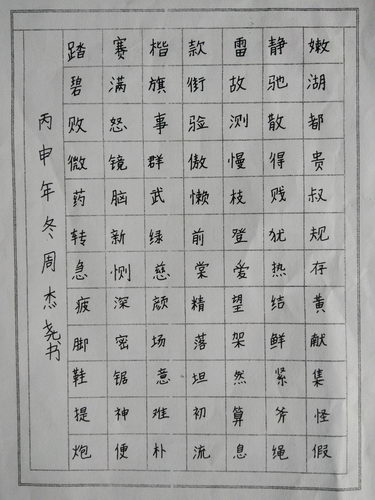 嫩湖都贵叔规存黄献集怪假
静驰散得贱犹热结鲜紧斧绳
雷故测慢枝登爱望架然算息
款衔验傲懒前棠精落坦初流
楷旗事群武绿慈颜场意难朴
赛满怒镜脑新恻深密锯神便
踏碧败微药转急疲脚鞋提炮
丙申年冬周杰尧书